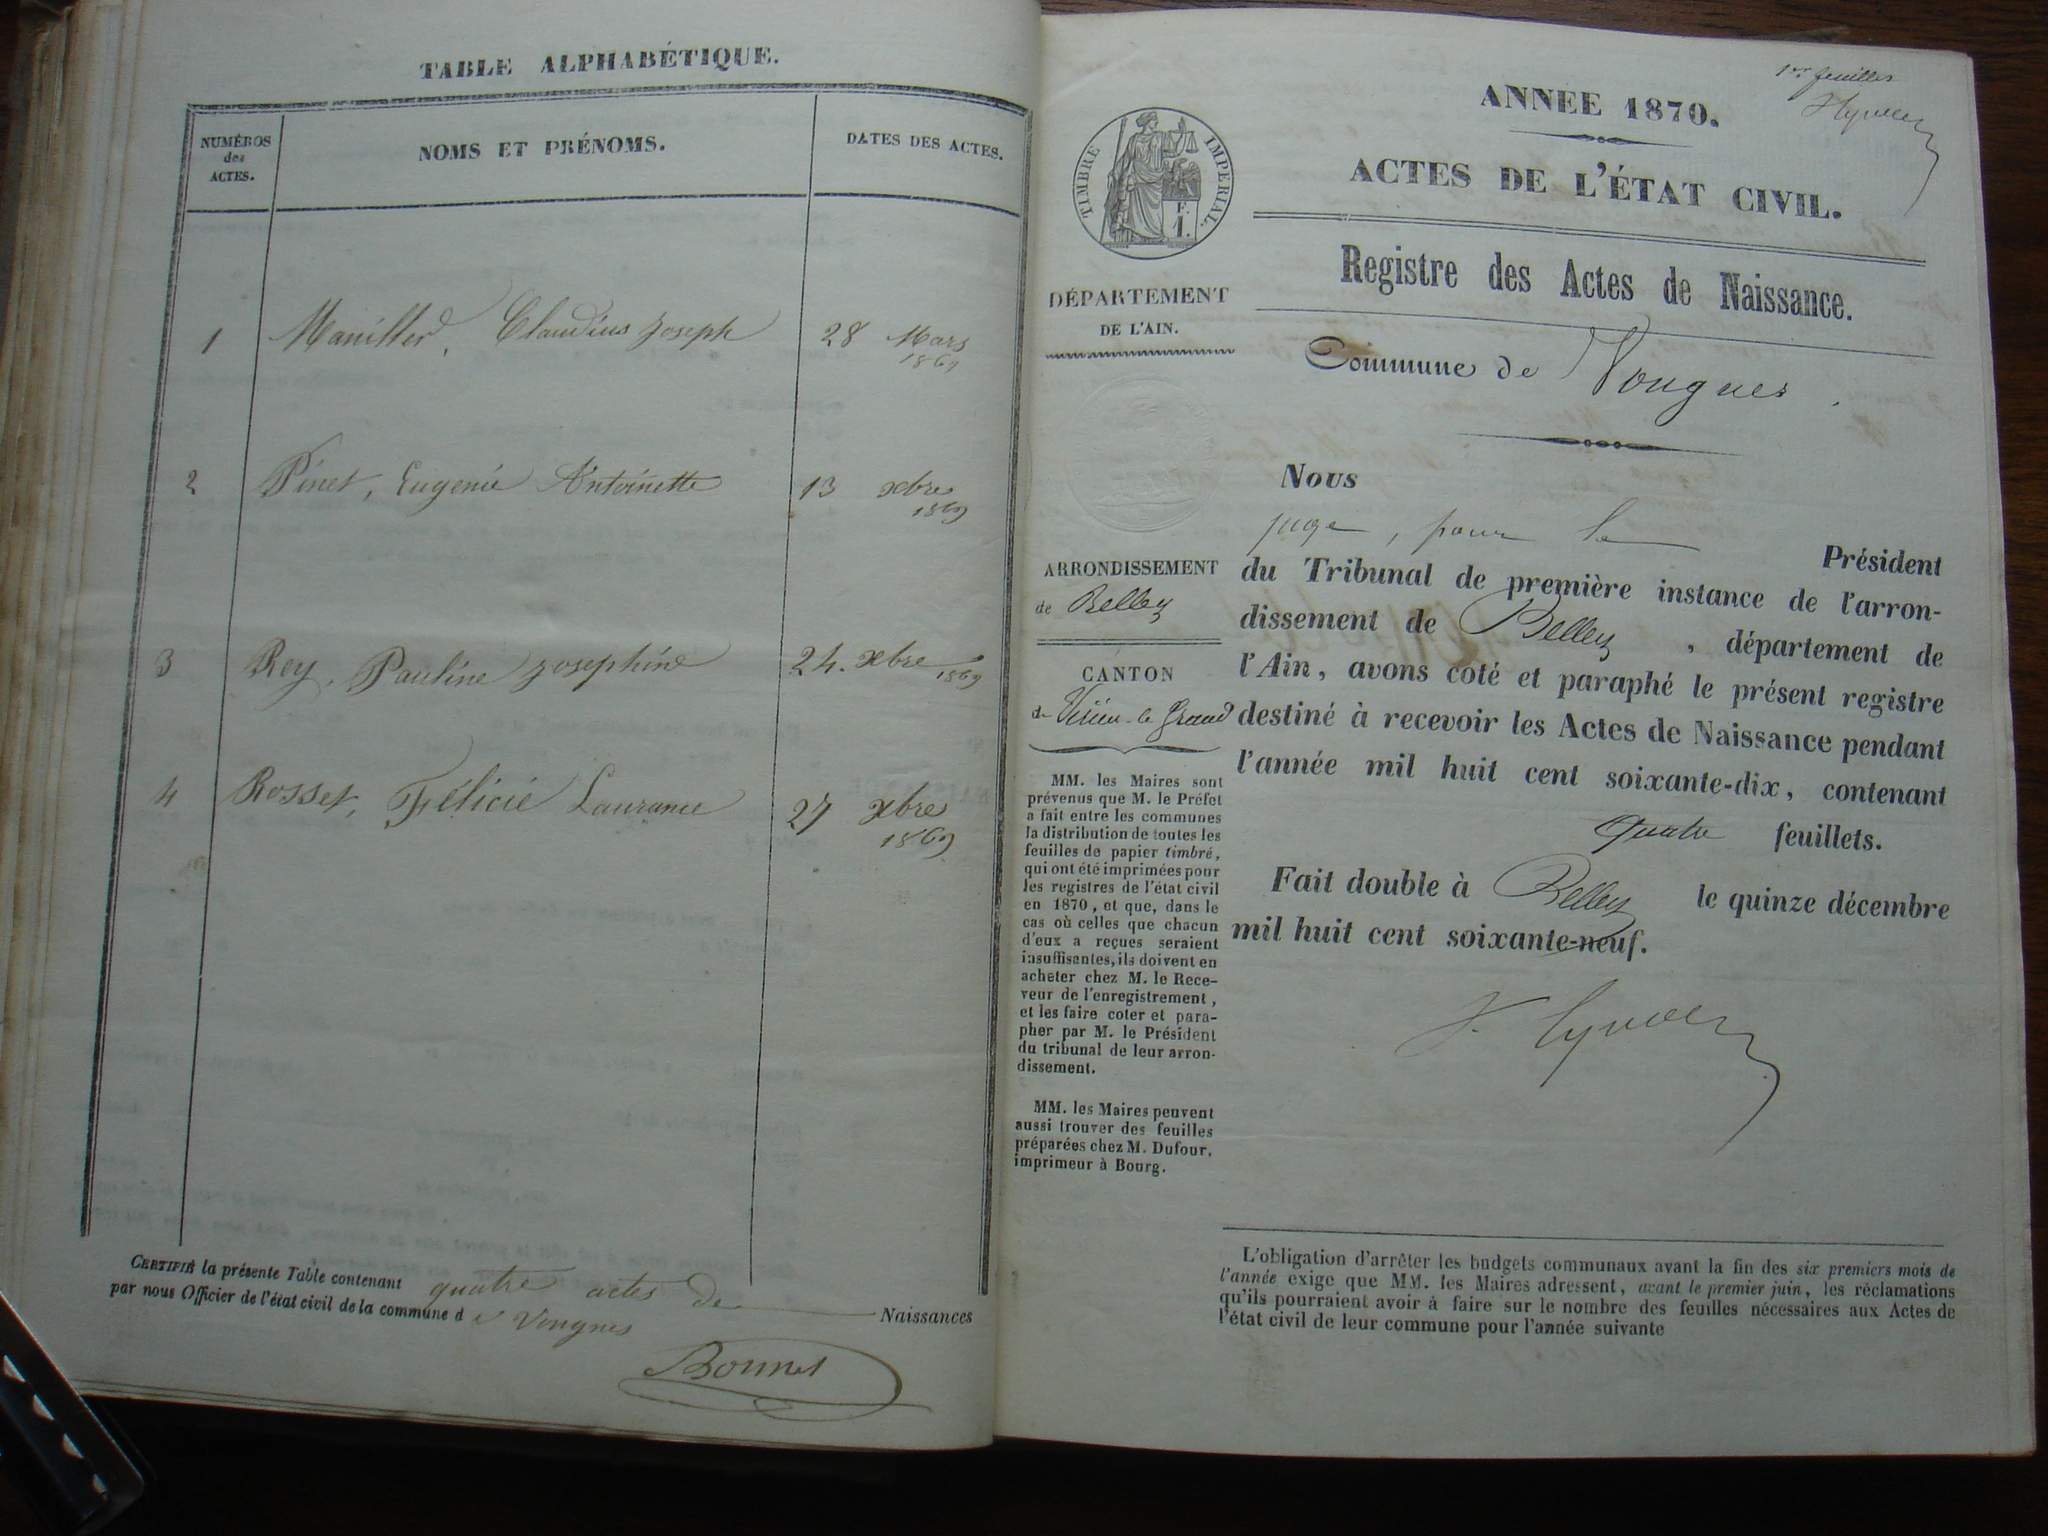 TABLE ALPHABÉTIQUE.
NUMÉROS
des
ACTES.
NOMS ET PRÉNOMS.
DATES DES ACTES.
1 Claudius Joseph 28 Mars
1869
2 Pinet, Eugenie Antoinette 13 xbre
1869
3 Rey, Pauline Josephine 24. xbre
1869
4 Rosset, Félicie Laurance 27 xbre
1869
CERTIFIÉ la présente Table contenant quatre actes de Naissances
par nous Officier de l'état civil de la commune de Vongnes
Bonnet
1er feuillet
ANNEE 1870.
ACTES DE L'ÉTAT CIVIL.
Registre des Actes de Naissance.
Commune de Vongnes.
TIMBRE IMPERIAL.
F.
1.
DÉPARTEMENT
DE L'AIN.
ARRONDISSEMENT
de Belley
CANTON
de Virieu-le Grand
MM. les Maires sont
prévenus que M. le Préfet
a fait entre les communes
la distribution de toutes les
feuilles de papier timbré,
qui ont été imprimées pour
les registres de l'état civil
en 1870, et que, dans le
cas où celles que chacun
d'eux a reçues seraient
insuffisantes, ils doivent en
acheter chez M. le Rece-
veur de l'enregistrement,
et les faire coter et para-
pher par M. le Président
du tribunal de leur arron-
dissement.
MM. les Maires peuvent
aussi trouver des feuilles
préparées chez M. Dufour,
imprimeur à Bourg.
Nous
juge, pour le Président
du Tribunal de première instance de l'arron-
dissement de Belley, département de
l'Ain, avons coté et paraphé le présent registre
destiné à recevoir les Actes de Naissance pendant
l'année mil huit cent soixante-dix, contenant
quatre feuillets.
Fait double à Belley le quinze décembre
mil huit cent soixante-neuf.
L'obligation d'arrêter les budgets communaux avant la fin des six premiers mois de
l'année exige que MM. les Maires adressent, avant le premier juin, les réclamations
qu'ils pourraient avoir à faire sur le nombre des feuilles nécessaires aux Actes de
l'état civil de leur commune pour l'année suivante